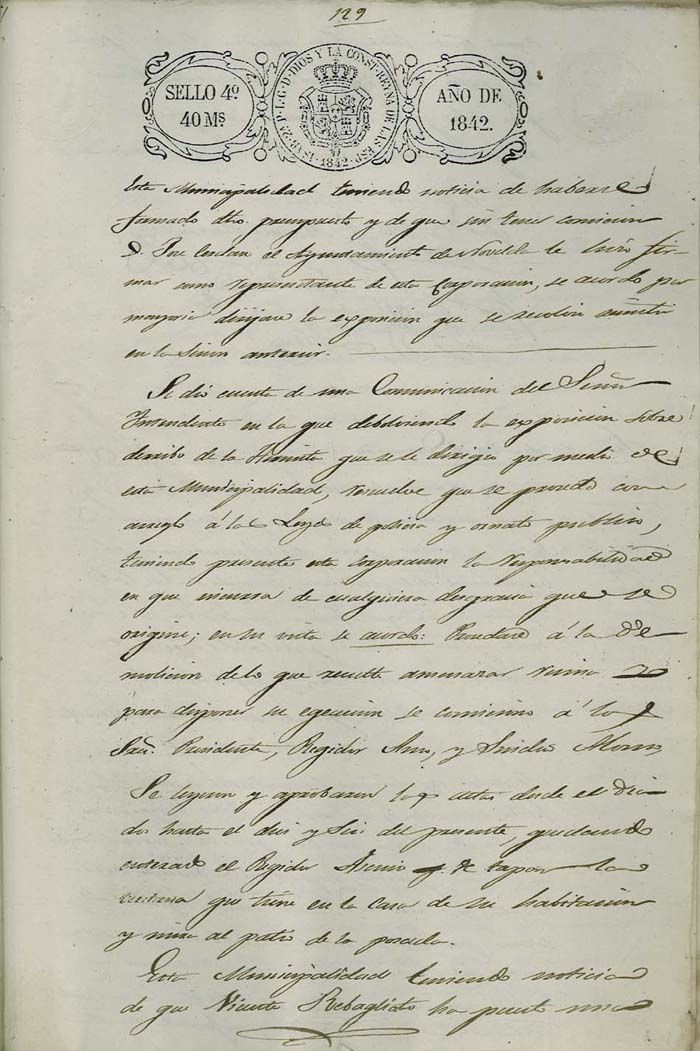 129
SELLO 4º
40 Mˢ
ISAB. 2ª P. L. G. D. DIOS Y LA CONST. REYNA DE LAS ESP.
1842
AÑO DE
1842.
Esta Municipalidad teniendo noticia de haberse
formado dho. presupuesto y de que sin tener comision
D. José el Ayuntamiento de Novelda le hizo fir-
mar como representante de esta Corporacion, se acordó por
mayoria dirijase la exposicion que se
en la anterior.
Se dió cuenta de una Comunicacion del Señor
Intendente en la que debolviendo la exposicion sobre
derribo de la Hermita que se le dirigió por medio de
esta Municipalidad, resuelve que se proceda con
arreglo á las Leyes de policia y ornato publico,
teniendo presente esta corporacion la responsabilidad
en que incurra de cualquiera desgracia que se
origine; en su vista se acordó: Procedase á la de
molicion de lo que resulte amenazar ruina y
para disponer su egecucion se comisiona á los
Sres. Presidente, Regidor, y Sindico
Se leyeron y aprobaron las actas desde el dia
dos hasta el diez y seis del presente, quedando
enterado el Regidor de tapar la
ventana que tiene en la Casa de su habitacion
y mira al patio de la posada.
Esta Municipalidad teniendo noticia
de que Vicente Rebagliato ha puesto una